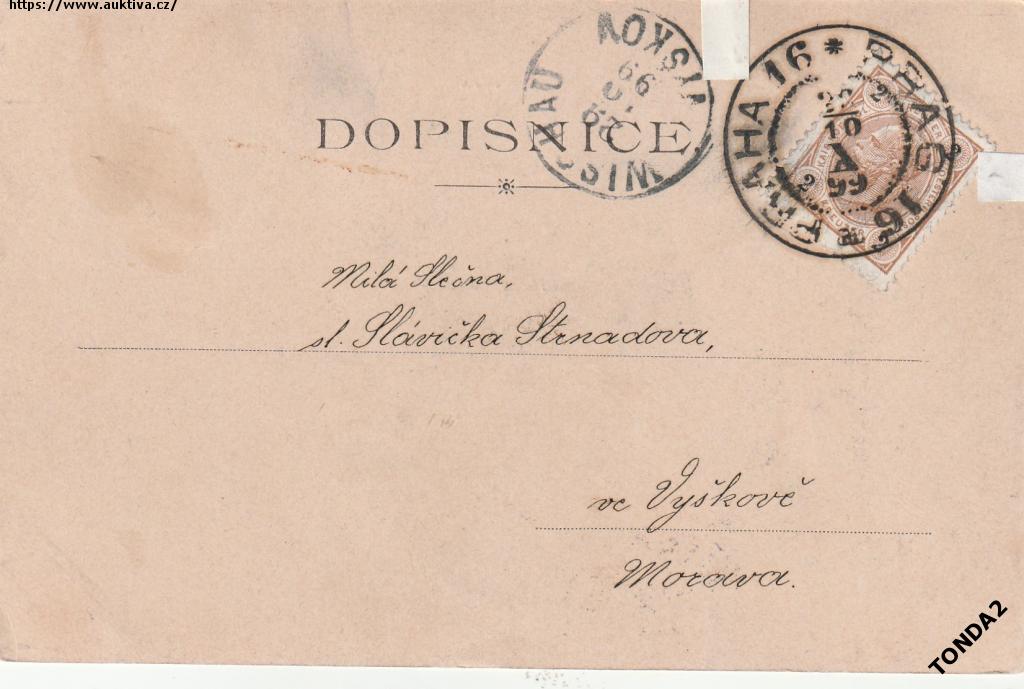 https://www.auktiva.cz/
DOPISNICE.
PRAG 16 * PRAHA 16 *
10
X
99
WISCHAU
VYŠKOV
99
Milá Slečna,
sl. Slávička Strnadova,
ve Vyškově
Morava.
TONDA2